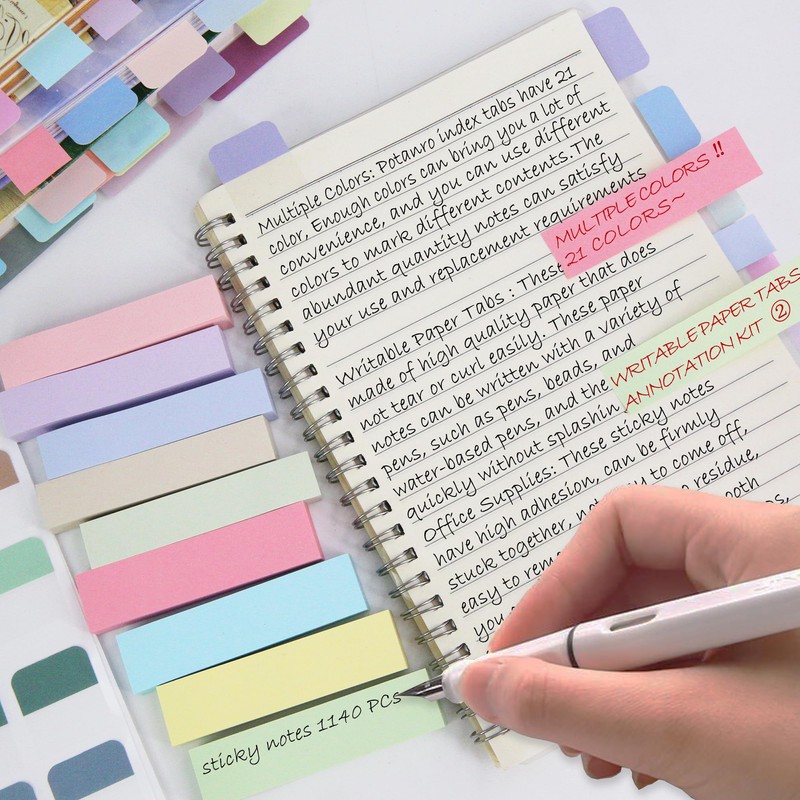 Multiple Colors: Potanro index tabs have 21
color, Enough colors can bring you a lot of
convenience, and you can use different
colors to mark different contents.The
abundant quantity notes can satisfy
your use and replacement requirements
MULTIPLE COLORS !!
21 COLORS~
Writable Paper Tabs : These
made of high quality paper that does
not tear or curl easily. These paper
notes can be written with a variety of
pens, such as pens, beads, and
water-based pens, and the
quickly without splashin
WRITABLE PAPER TABS
ANNOTATION KIT ②
Office Supplies: These sticky notes
have high adhesion, can be firmly
stuck together, not easy to come off,
easy to remo residue,
you ooth
sticky notes 1140 PCs